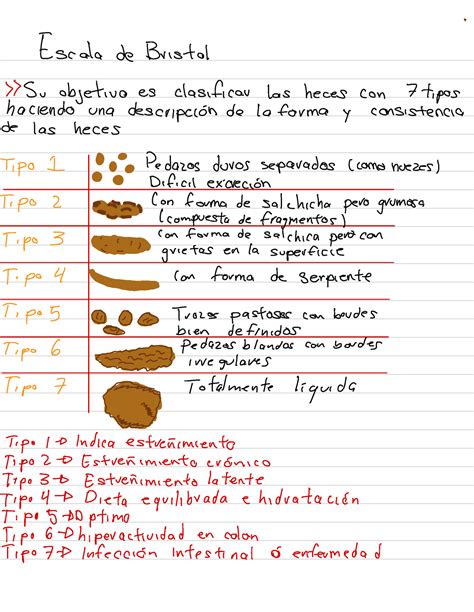 Escala de Bristol
>> Su objetivo es clasificar las heces con 7 tipos
haciendo una descripción de la forma y consistencia
de las heces
Tipo 1 Pedazos duros separados (como nueces)
Dificil excreción
Tipo 2 Con forma de salchicha pero grumosa
(compuesta de fragmentos)
Tipo 3 Con forma de salchica pero con
grietas en la superficie
Tipo 4 Con forma de serpiente
Tipo 5 Trozos pastosos con bordes
bien definidos
Tipo 6 Pedazos blandos con bordes
irregulares
Tipo 7 Totalmente liquida
Tipo 1 → Indica estreñimiento
Tipo 2 → Estreñimiento crónico
Tipo 3 → Estreñimiento latente
Tipo 4 → Dieta equilibrada e hidratación
Tipo 5 → Optimo
Tipo 6 → hiperactividad en colon
Tipo 7 → Infección Intestinal ó enfermedad